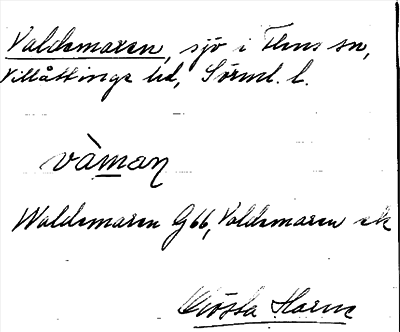 Valdemaren, sjö i Flens sn,
Villåttinge hd, Sörml. l.
vàman
Waldemaren G66, Valdemaren ek
Gösta Harne